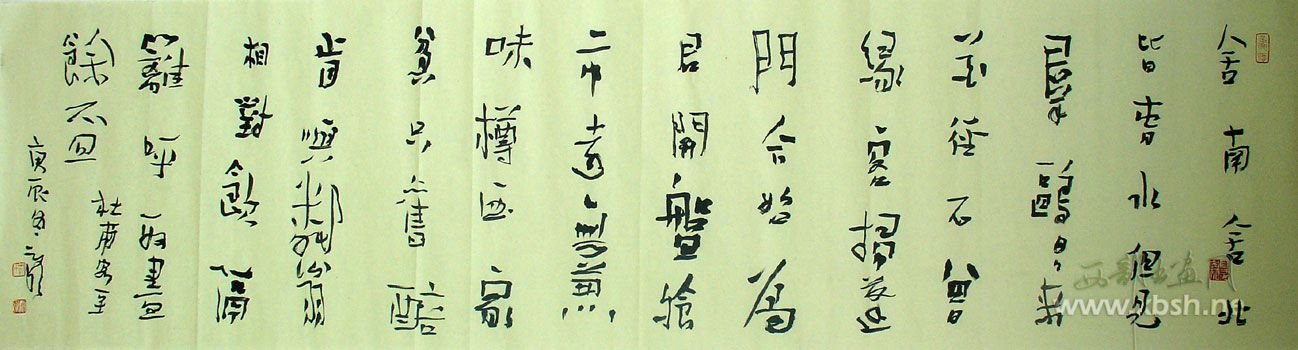 舍南舍北
皆春水但見
群鷗日日来
花徑不曾
緣客掃蓬
門今始為
君開盤飧
市遠無兼
味樽酒家
貧只舊醅
肯與鄰翁
相對飲隔
籬呼取盡
餘盃
杜甫客至
庚辰冬